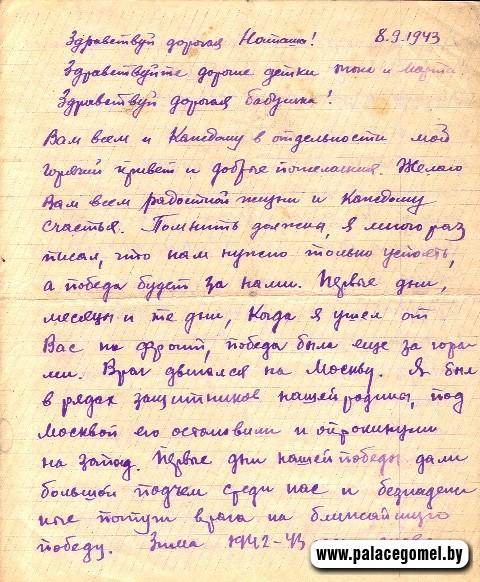 Здравствуй дорогая Наташа! 8.9.1943
Здравствуйте дорогие детки и Марта
Здравствуй дорогая бабушка!
Вам всем и каждому в отдельности мой
горячий привет и добрые пожелания. Желаю
Вам всем радостной жизни и каждому
счастья. Помнить должна, я много раз
писал, что нам нужно только устоять,
а победа будет за нами. Первые дни,
месяцы и те дни, когда я ушел от
Вас на фронт, победа была еще за гора-
ми. Враг двигался на Москву. Я был
в рядах защитников нашей родины, под
Москвой его остановили и опрокинули
на запад. Первые дни нашей победы дали
большой подъем среди нас и безнадеж-
ные потуги врага на ближайшую
победу. Зима 1942-43
www.palacegomel.by